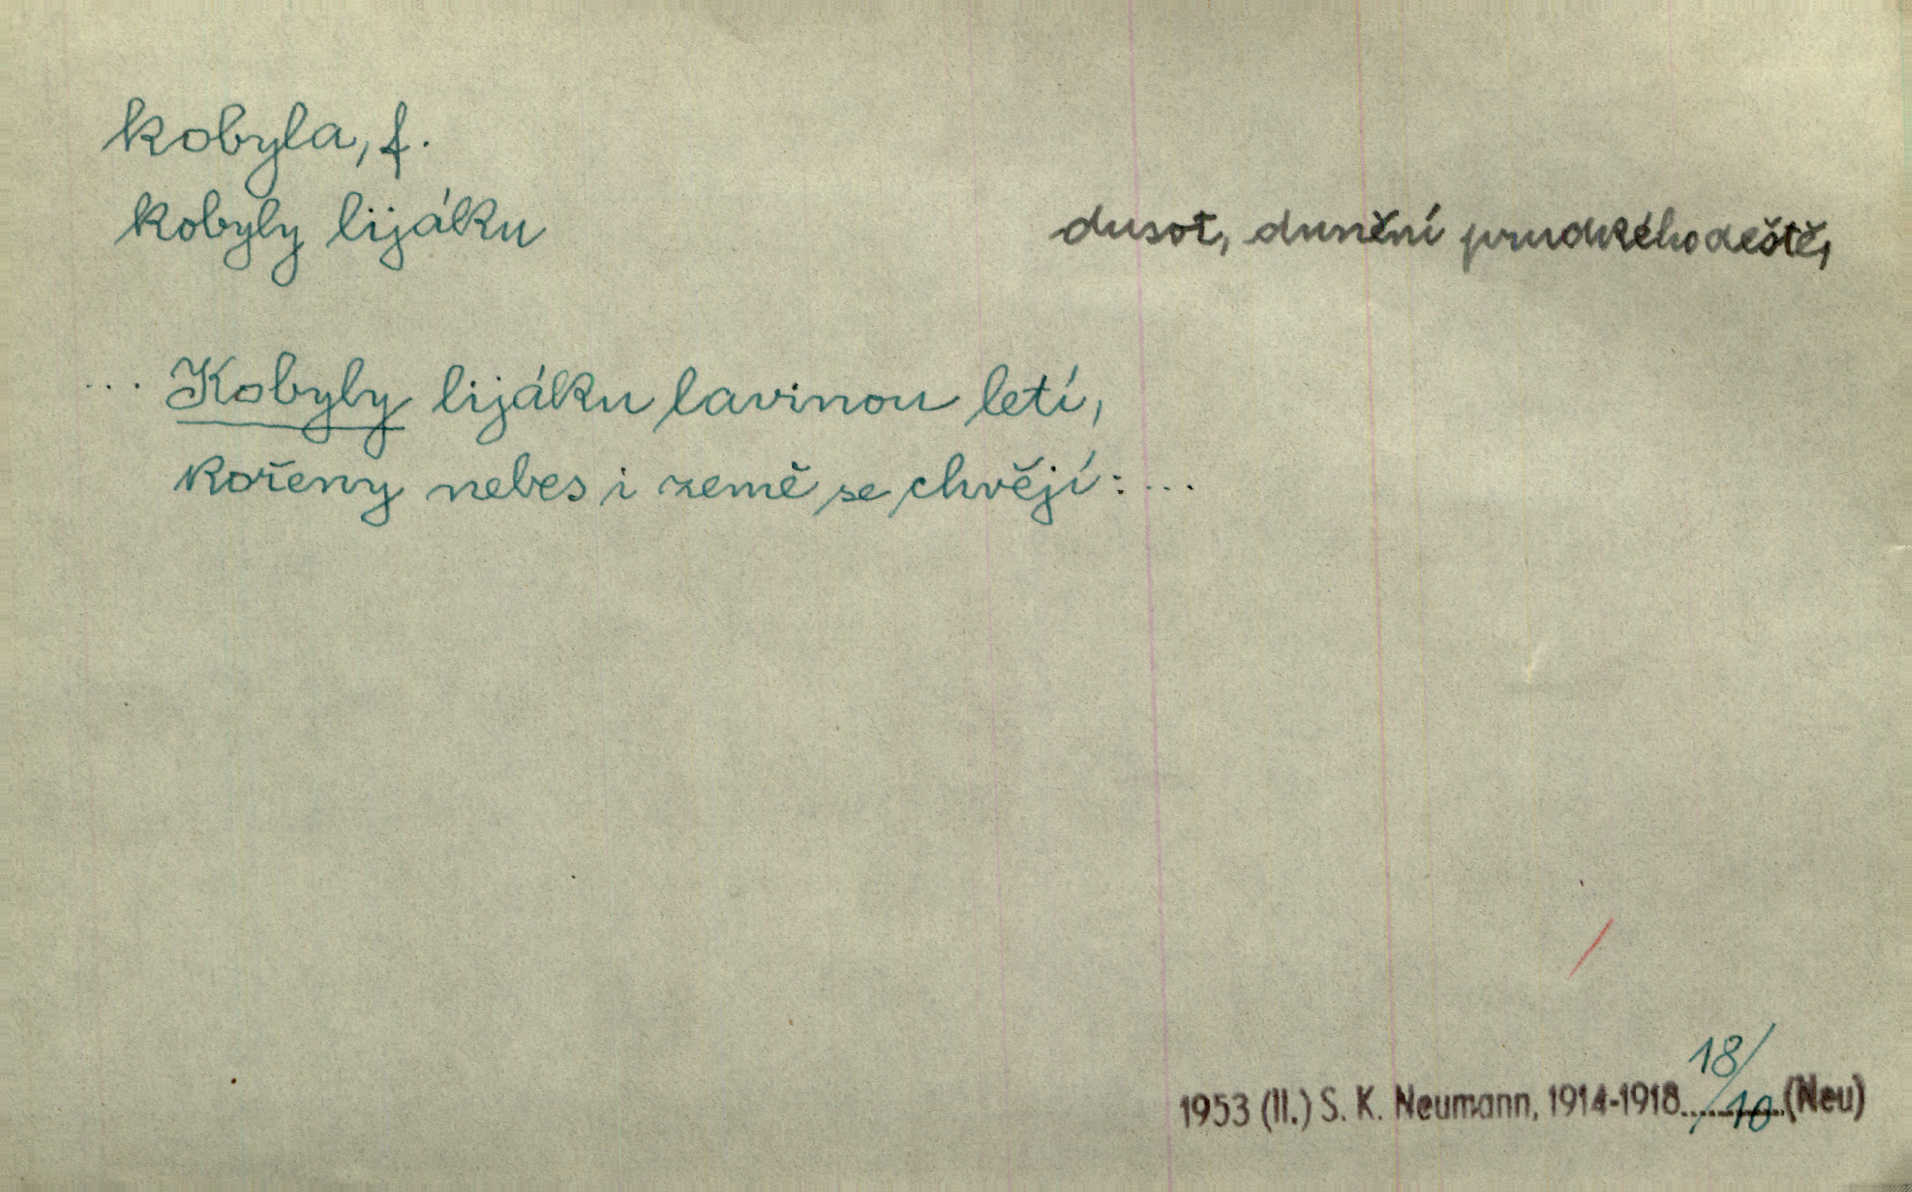 kobyla, f.
kobyly lijáku dusot, dunění prudkého deště,
... Kobyly lijáku lavinou letí,
kořeny nebes i země se chvějí: ...
18/10
1953 (II.) S. K. Neumann, 1914-1918 ........... (Neu)